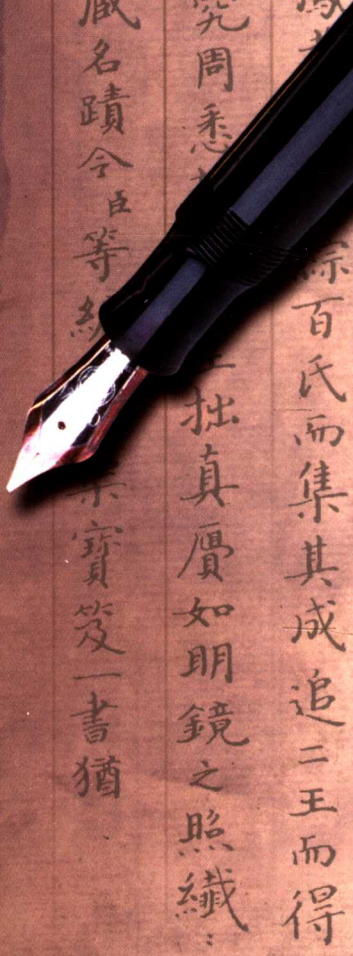 綜百氏而集其成追二王而得
究周悉拙真贋如明鏡之照纖
名蹟令臣等寶笈一書猶